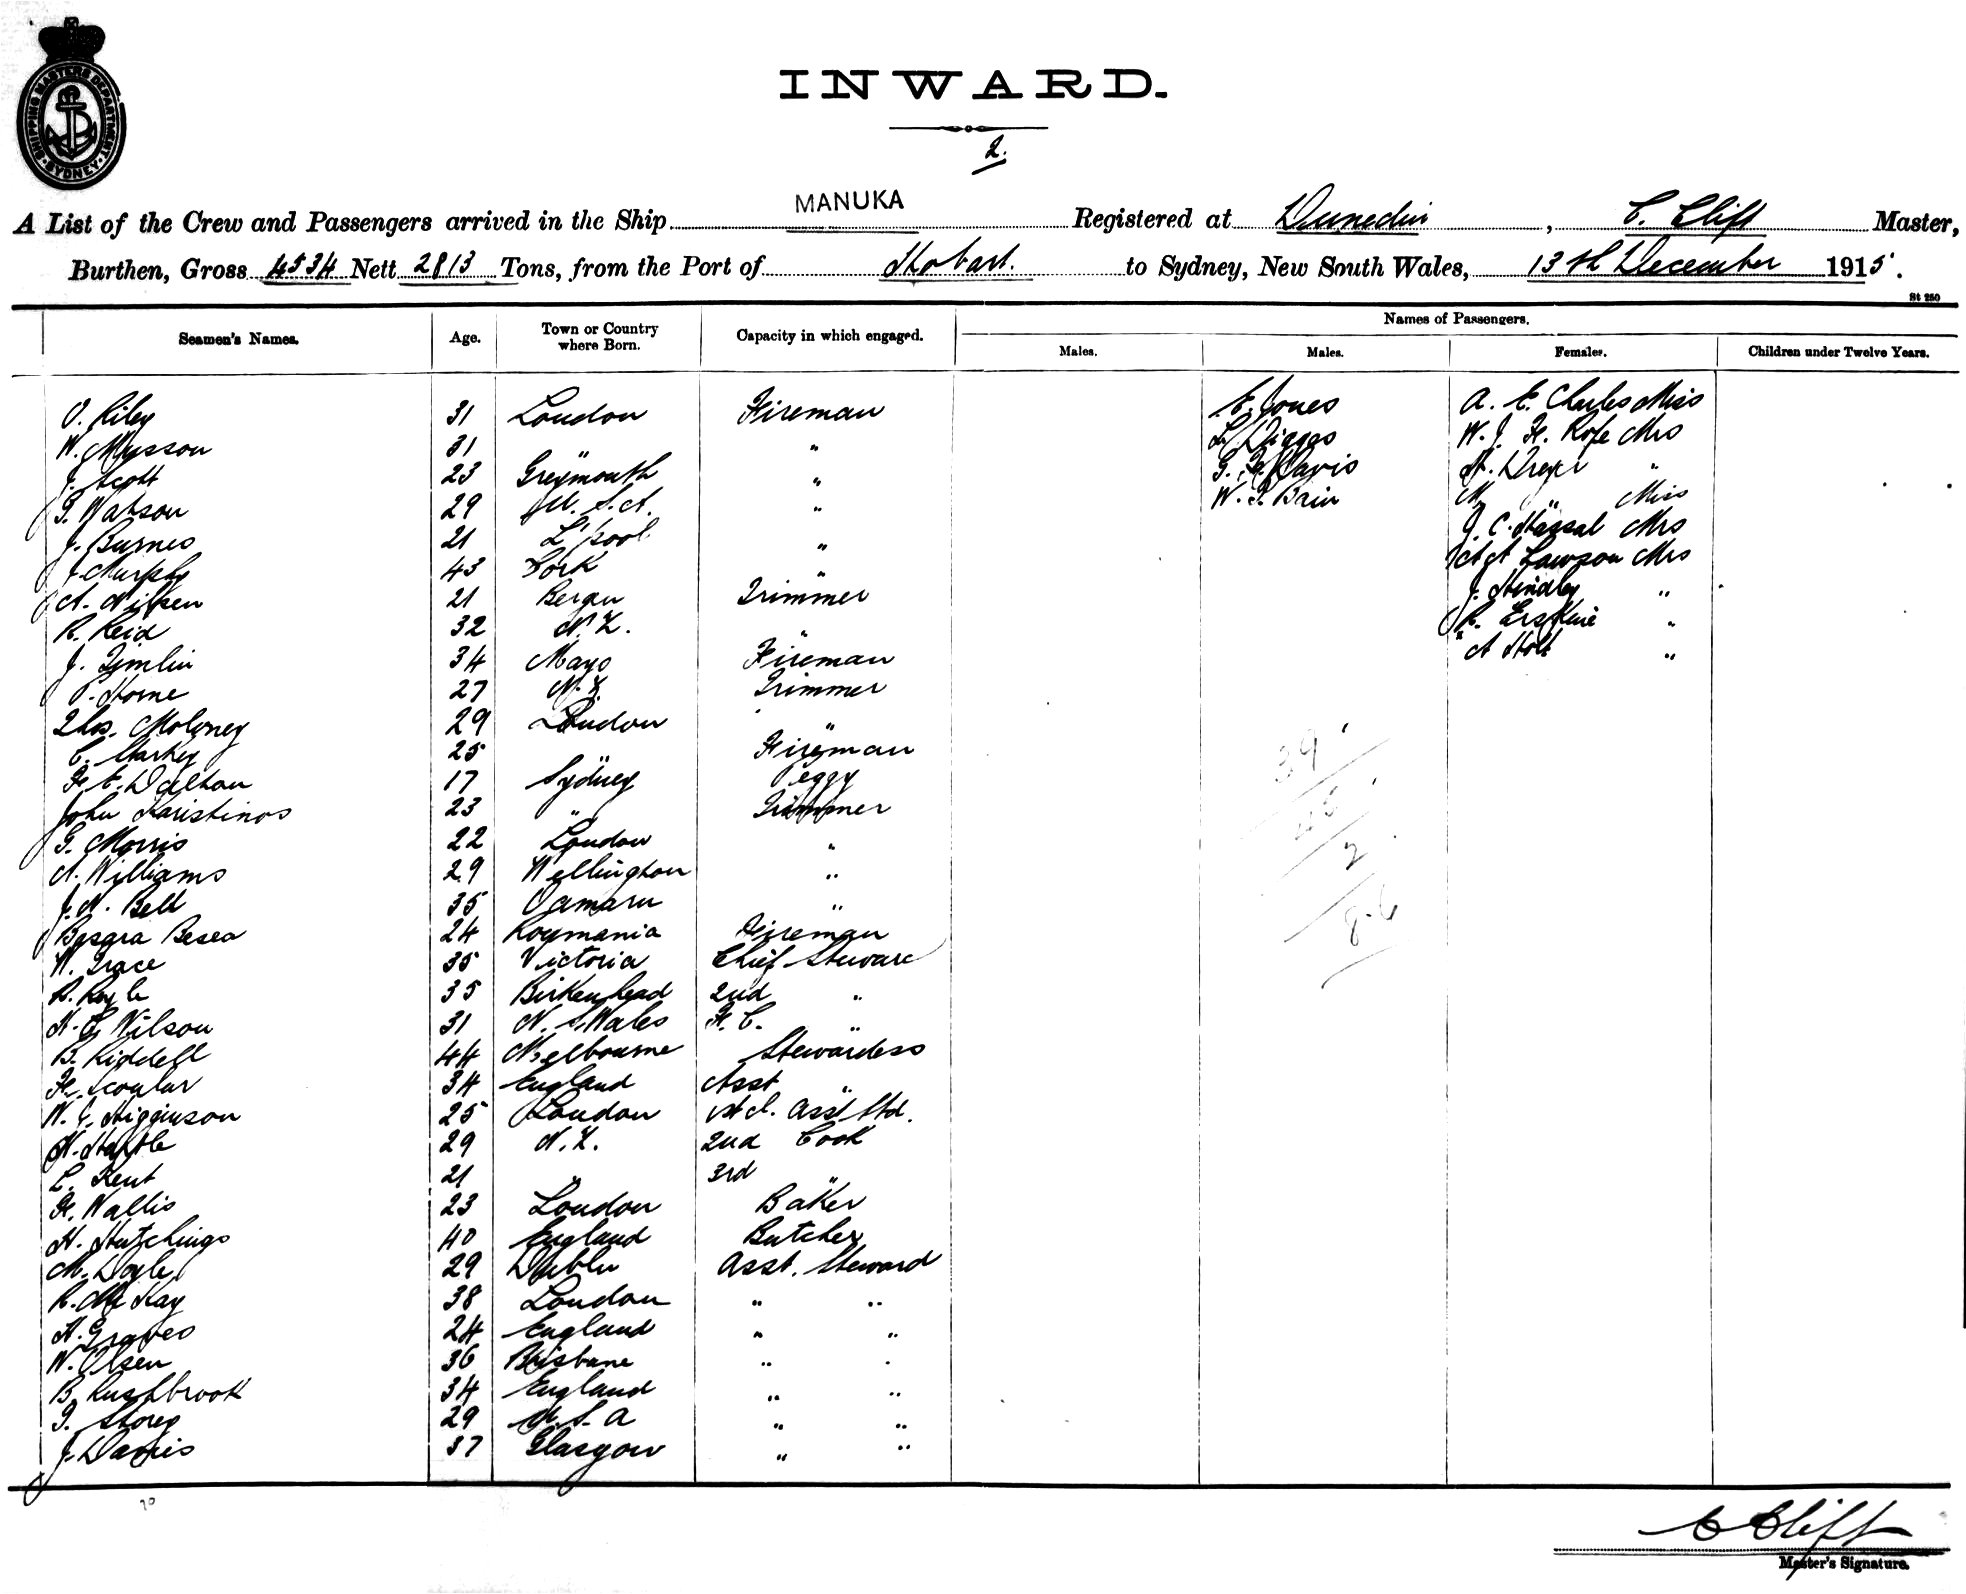 SHIPPING MASTERS DEPARTMENT · SYDNEY ·
INWARD.
2.
A List of the Crew and Passengers arrived in the Ship MANUKA Registered at Dunedin, C. Clift Master,
Burthen, Gross 4534 Nett 2813 Tons, from the Port of Hobart. to Sydney, New South Wales, 13th December 1915.
St 250
Seamen's Names. Age. Town or Country where Born. Capacity in which engaged. Names of Passengers.
Males. Males. Females. Children under Twelve Years.
O. Riley 31 London Fireman E. Jones A. E. Charles Miss
W. Musson 31 " " L. Diggs W. J. H. Rofe Mrs
J. Scott 23 Greymouth " G. F. Davis H. Dreyer "
G. Watson 29 U. S. A. " W. G. Bain M. " Miss
J. Burnes 21 L'pool " J. C. Hassal Mrs
J. Murphy 43 Cork " Lawson Mrs
A. Nilsen 21 Bergen Trimmer J. Hindley "
R. Reid 32 N. Z. " R. Erskine "
J. Timlin 34 Mayo Fireman A Holt "
P. Horne 27 N. Z. Trimmer
Thos. Moloney 29 London "
C. Markey 25 " Fireman
F. E. Dalton 17 Sydney Peggy
John Karistinos 23 " Trimmer
G. Morris 22 London "
A. Williams 29 Wellington "
J. N. Bell 35 Oamaru "
Basara Besea 24 Roumania Fireman
W. Grace 35 Victoria Chief Steward
R. Royle 35 Birkenhead 2nd "
H. C. Wilson 31 N. S. Wales F. C. "
B. Riddell 44 Melbourne Stewardess
F. Scoular 34 England Asst "
W. J. Higginson 25 London Asst Std.
H. Hartle 29 N. Z. 2nd Cook
C. Kent 21 " 3rd "
F. Wallis 23 London Baker
H. Hutchings 40 England Butcher
M. Doyle 29 Dublin Asst. Steward
R. McKay 38 London " "
H. Graves 24 England " "
W. Olsen 36 Brisbane " "
B. Rushbrook 34 England " "
G. Storey 29 U. S. A " "
J. Davies 37 Glasgow " "
39
45
2
86
C Clift
Master's Signature.